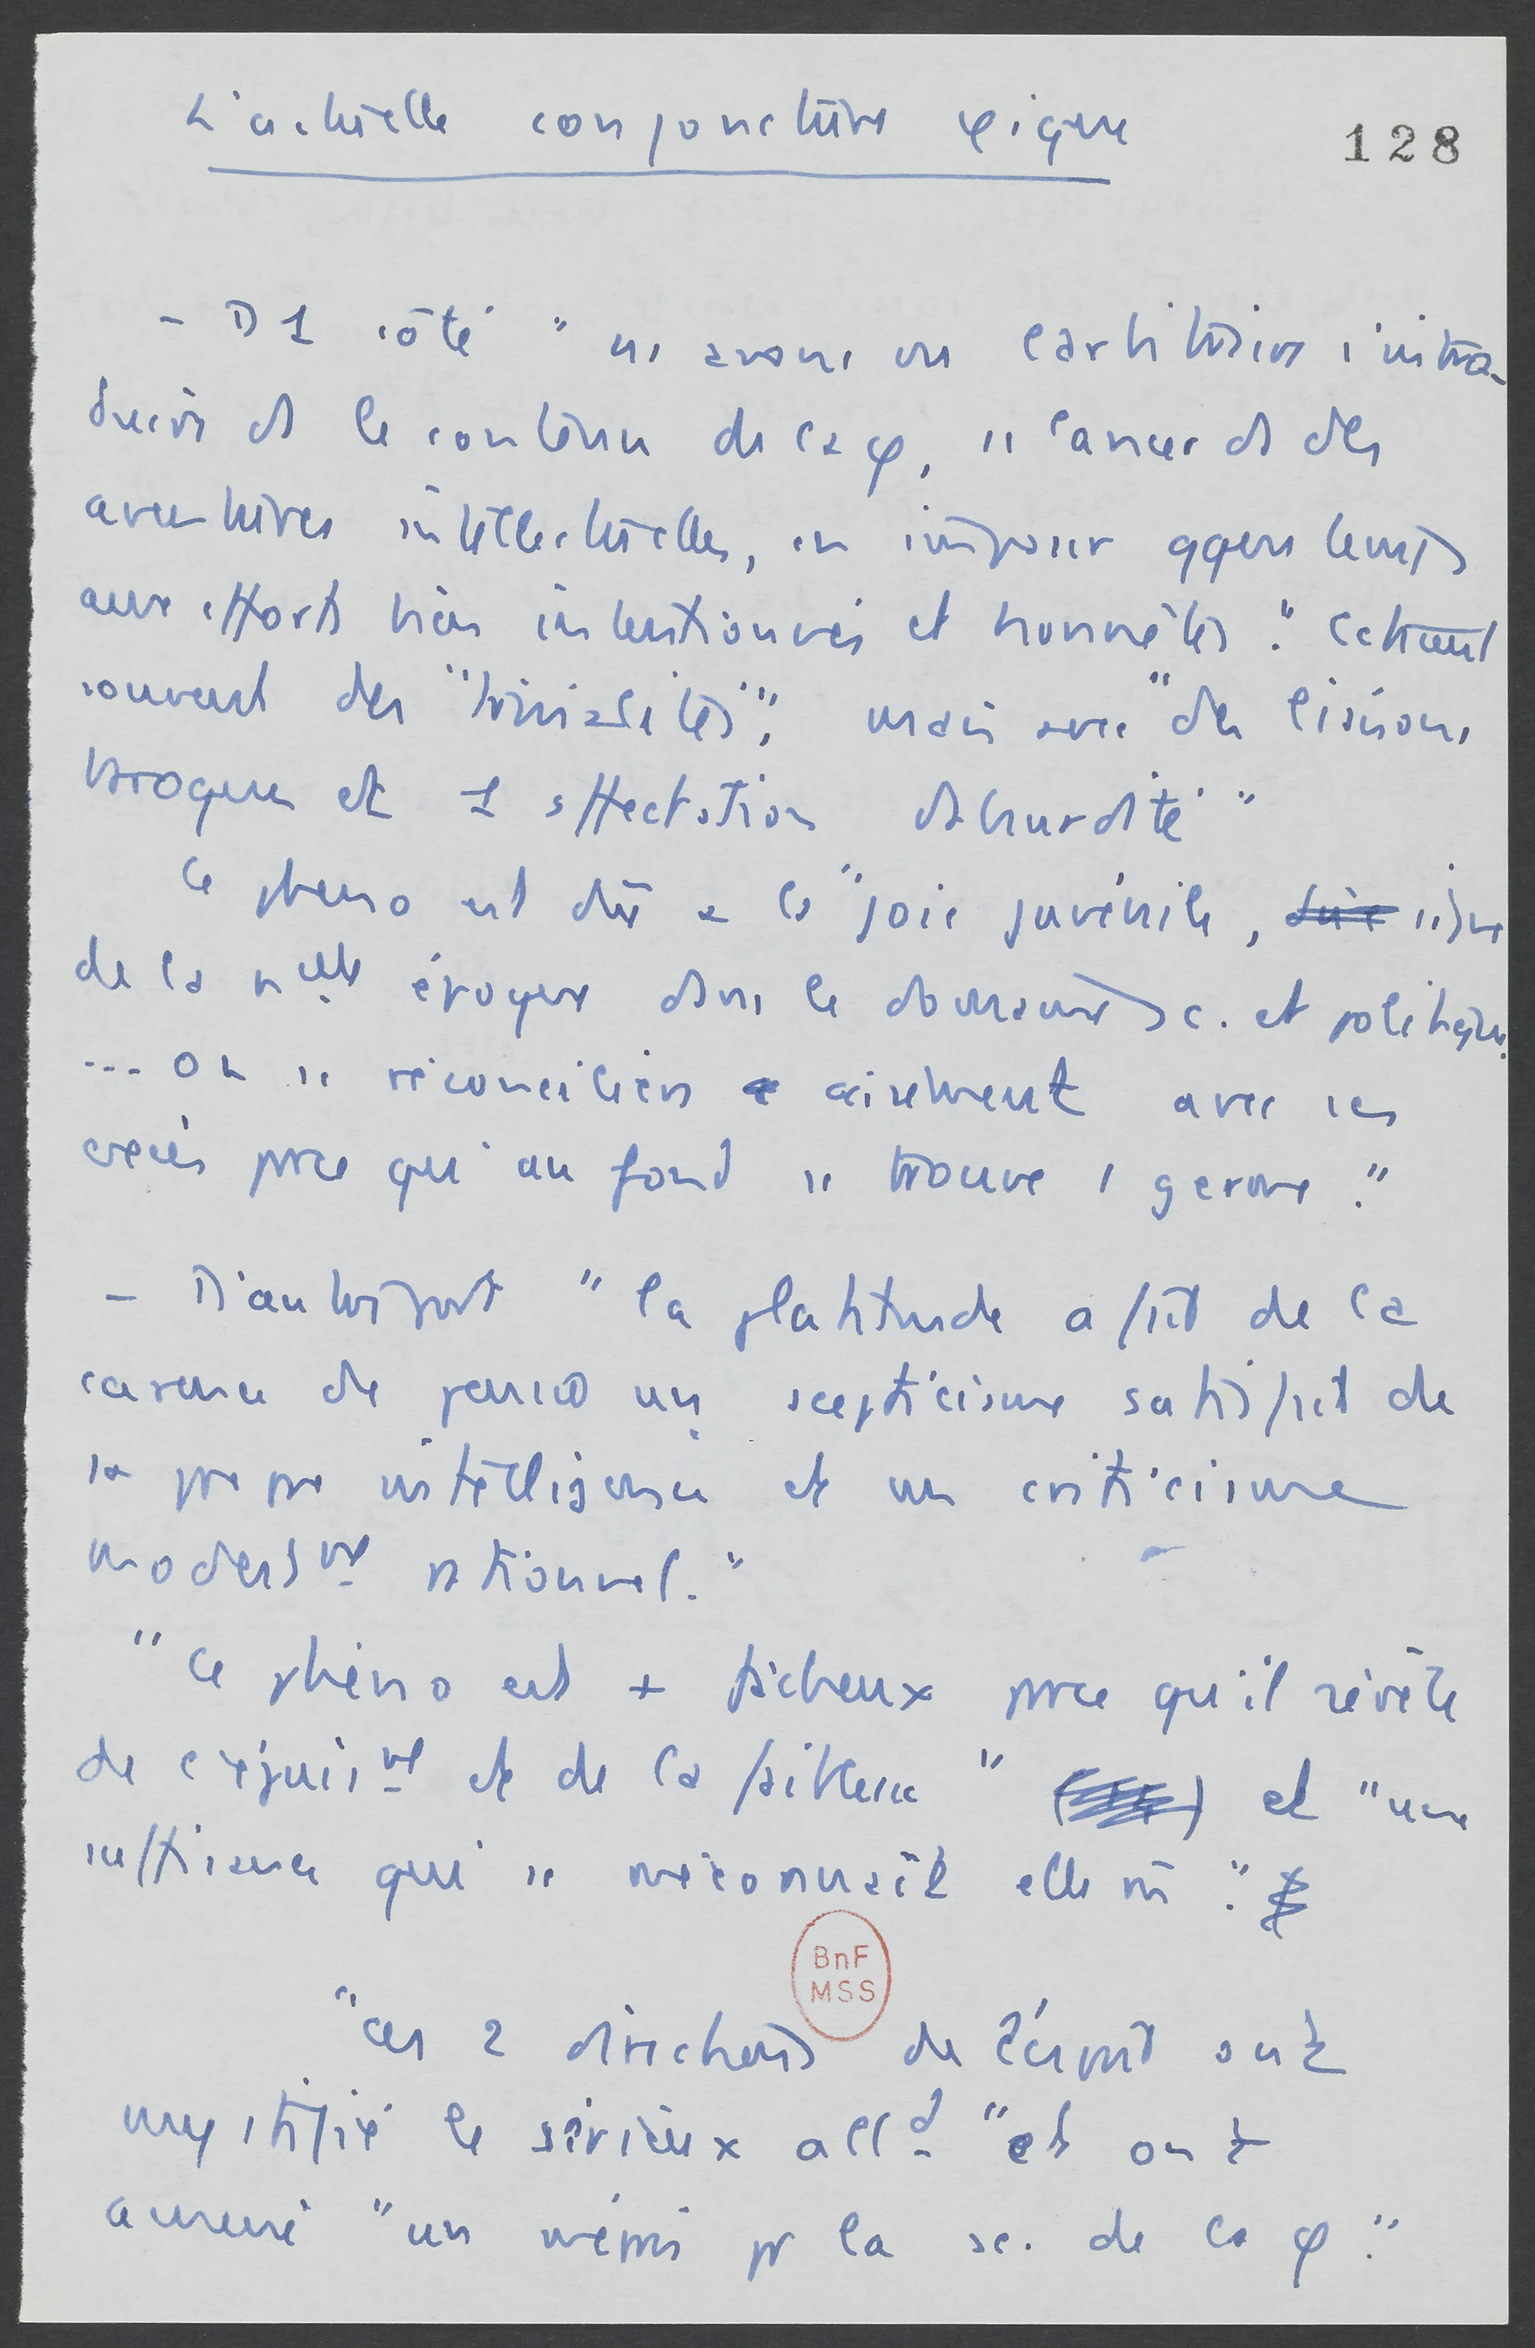 L'actuelle conjoncture φique
128
- D 1 côté " ns avons vu l'arbitraire s'intro-
duire ds le contenu de la φ, se lancer ds des
aventures intellectuelles, en imposer qques temps
aux efforts bien intentionnés et honnêtes." C'étaient
souvent des "trivialités", mais avec "des liaisons
baroques et 1 affectation d'absurdité"
Ce pheno est dû a la "joie juvénile,
de la nelle époque dans le domaine sc. et politique.
... On se réconciliera aisément avec ces
excès parce qu'au fond se trouve 1 germe."
- D'autre part " la platitude a fait de la
carence de pensée un scepticisme satisfait de
sa propre intelligence et un criticisme
modestmt rationnel."
"Ce phéno est + fâcheux parce qu'il révèle
de l'épuismt et de la faiblesse " et "une
suffisance qui se méconnaît elle m̄."
BnF
MSS
"ces 2 directions de l'esprit ont
mystifié le sérieux alld " et ont
amené "un mépris pr la sc. de la φ."